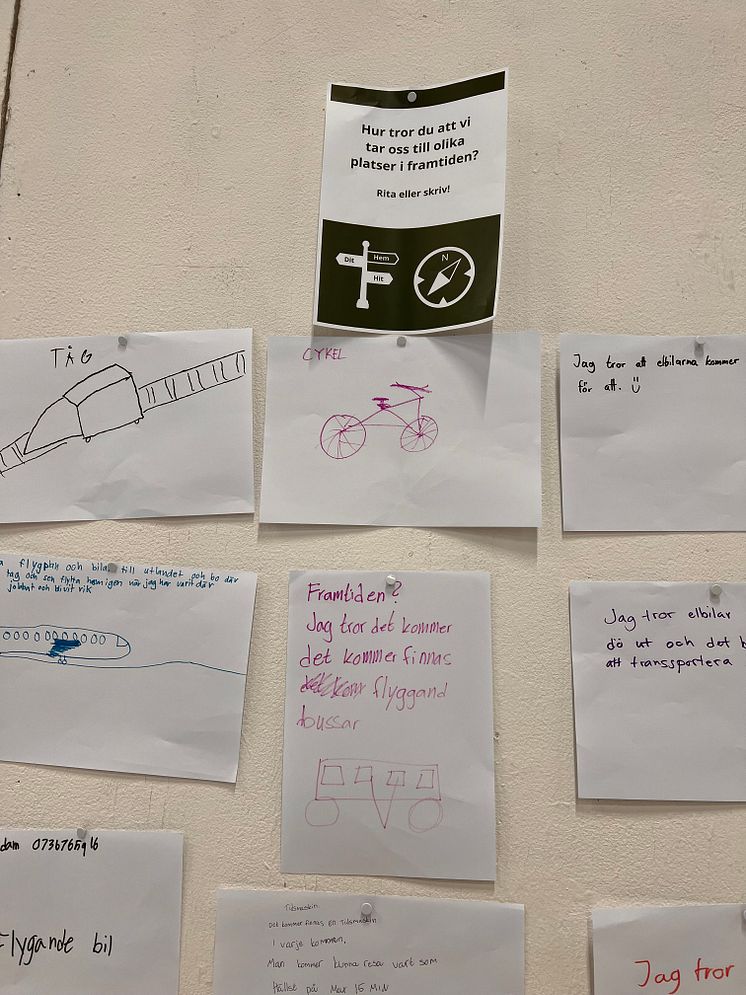 Hur tror du att vi
tar oss till olika
platser i framtiden?
Rita eller skriv!
Dit
Hem
Hit
N
TÅG
CYKEL
Jag tror att elbilarna kommer
för att.
flygplan och bilar till utlandet och bo där
tåg och sen flytta hem igen när jag har varit där
jobbat och blivit rik
Framtiden?
Jag tror det kommer
det kommer finnas
flyggand
bussar
Jag tror elbilar
dö ut och det
att transsportera
dam 0736765916
Flygande bil
Tidsmaskin
Det kommer finnas en Tidsmaskin
i varje kommun.
Man kommer kunna resa vart som
Hällst på Max 15 MIN
Jag tror